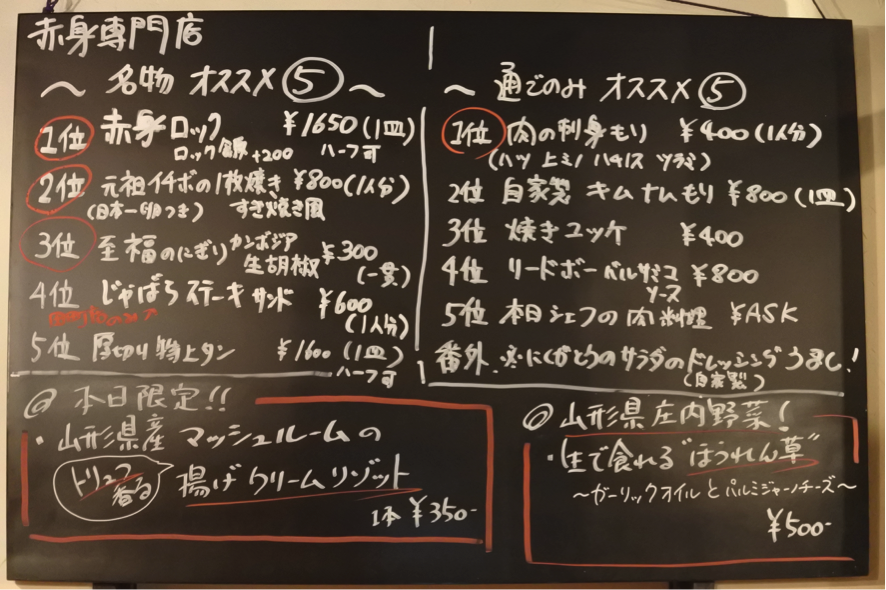 赤身専門店
〜 名物 オススメ⑤ 〜
1位 赤身ロック ¥1650(1皿)
ロック +200 ハーフ可
2位 元祖イチボの1枚焼き ¥800(1人分)
(日本一卵つき) すき焼き風
3位 至福のにぎり カンボジア ¥300
生胡椒 (一貫)
4位 じゃばらステーキサンド ¥600
(1人分)
5位 厚切り特上タン ¥1600(1皿)
ハーフ可
〜 通ごのみ オススメ⑤
1位 肉の刺身もり ¥400(1人分)
(ハツ 上ミノ ハチノス ツラミ)
2位 自家製 キムナムもり ¥800(1皿)
3位 焼きユッケ ¥400
4位 リードボー バルサミコ ¥800
ソース
5位 本日シェフの肉料理 ¥ASK
番外 のサラダのドレッシングうまし!
(自家製)
@ 本日限定!!
・山形県産 マッシュルームの
トリュフ香る 揚げクリームリゾット
1本 ¥350-
◎ 山形県庄内野菜!
・生で食れる"ほうれん草"
〜ガーリックオイルとパルミジャーノチーズ〜
¥500-